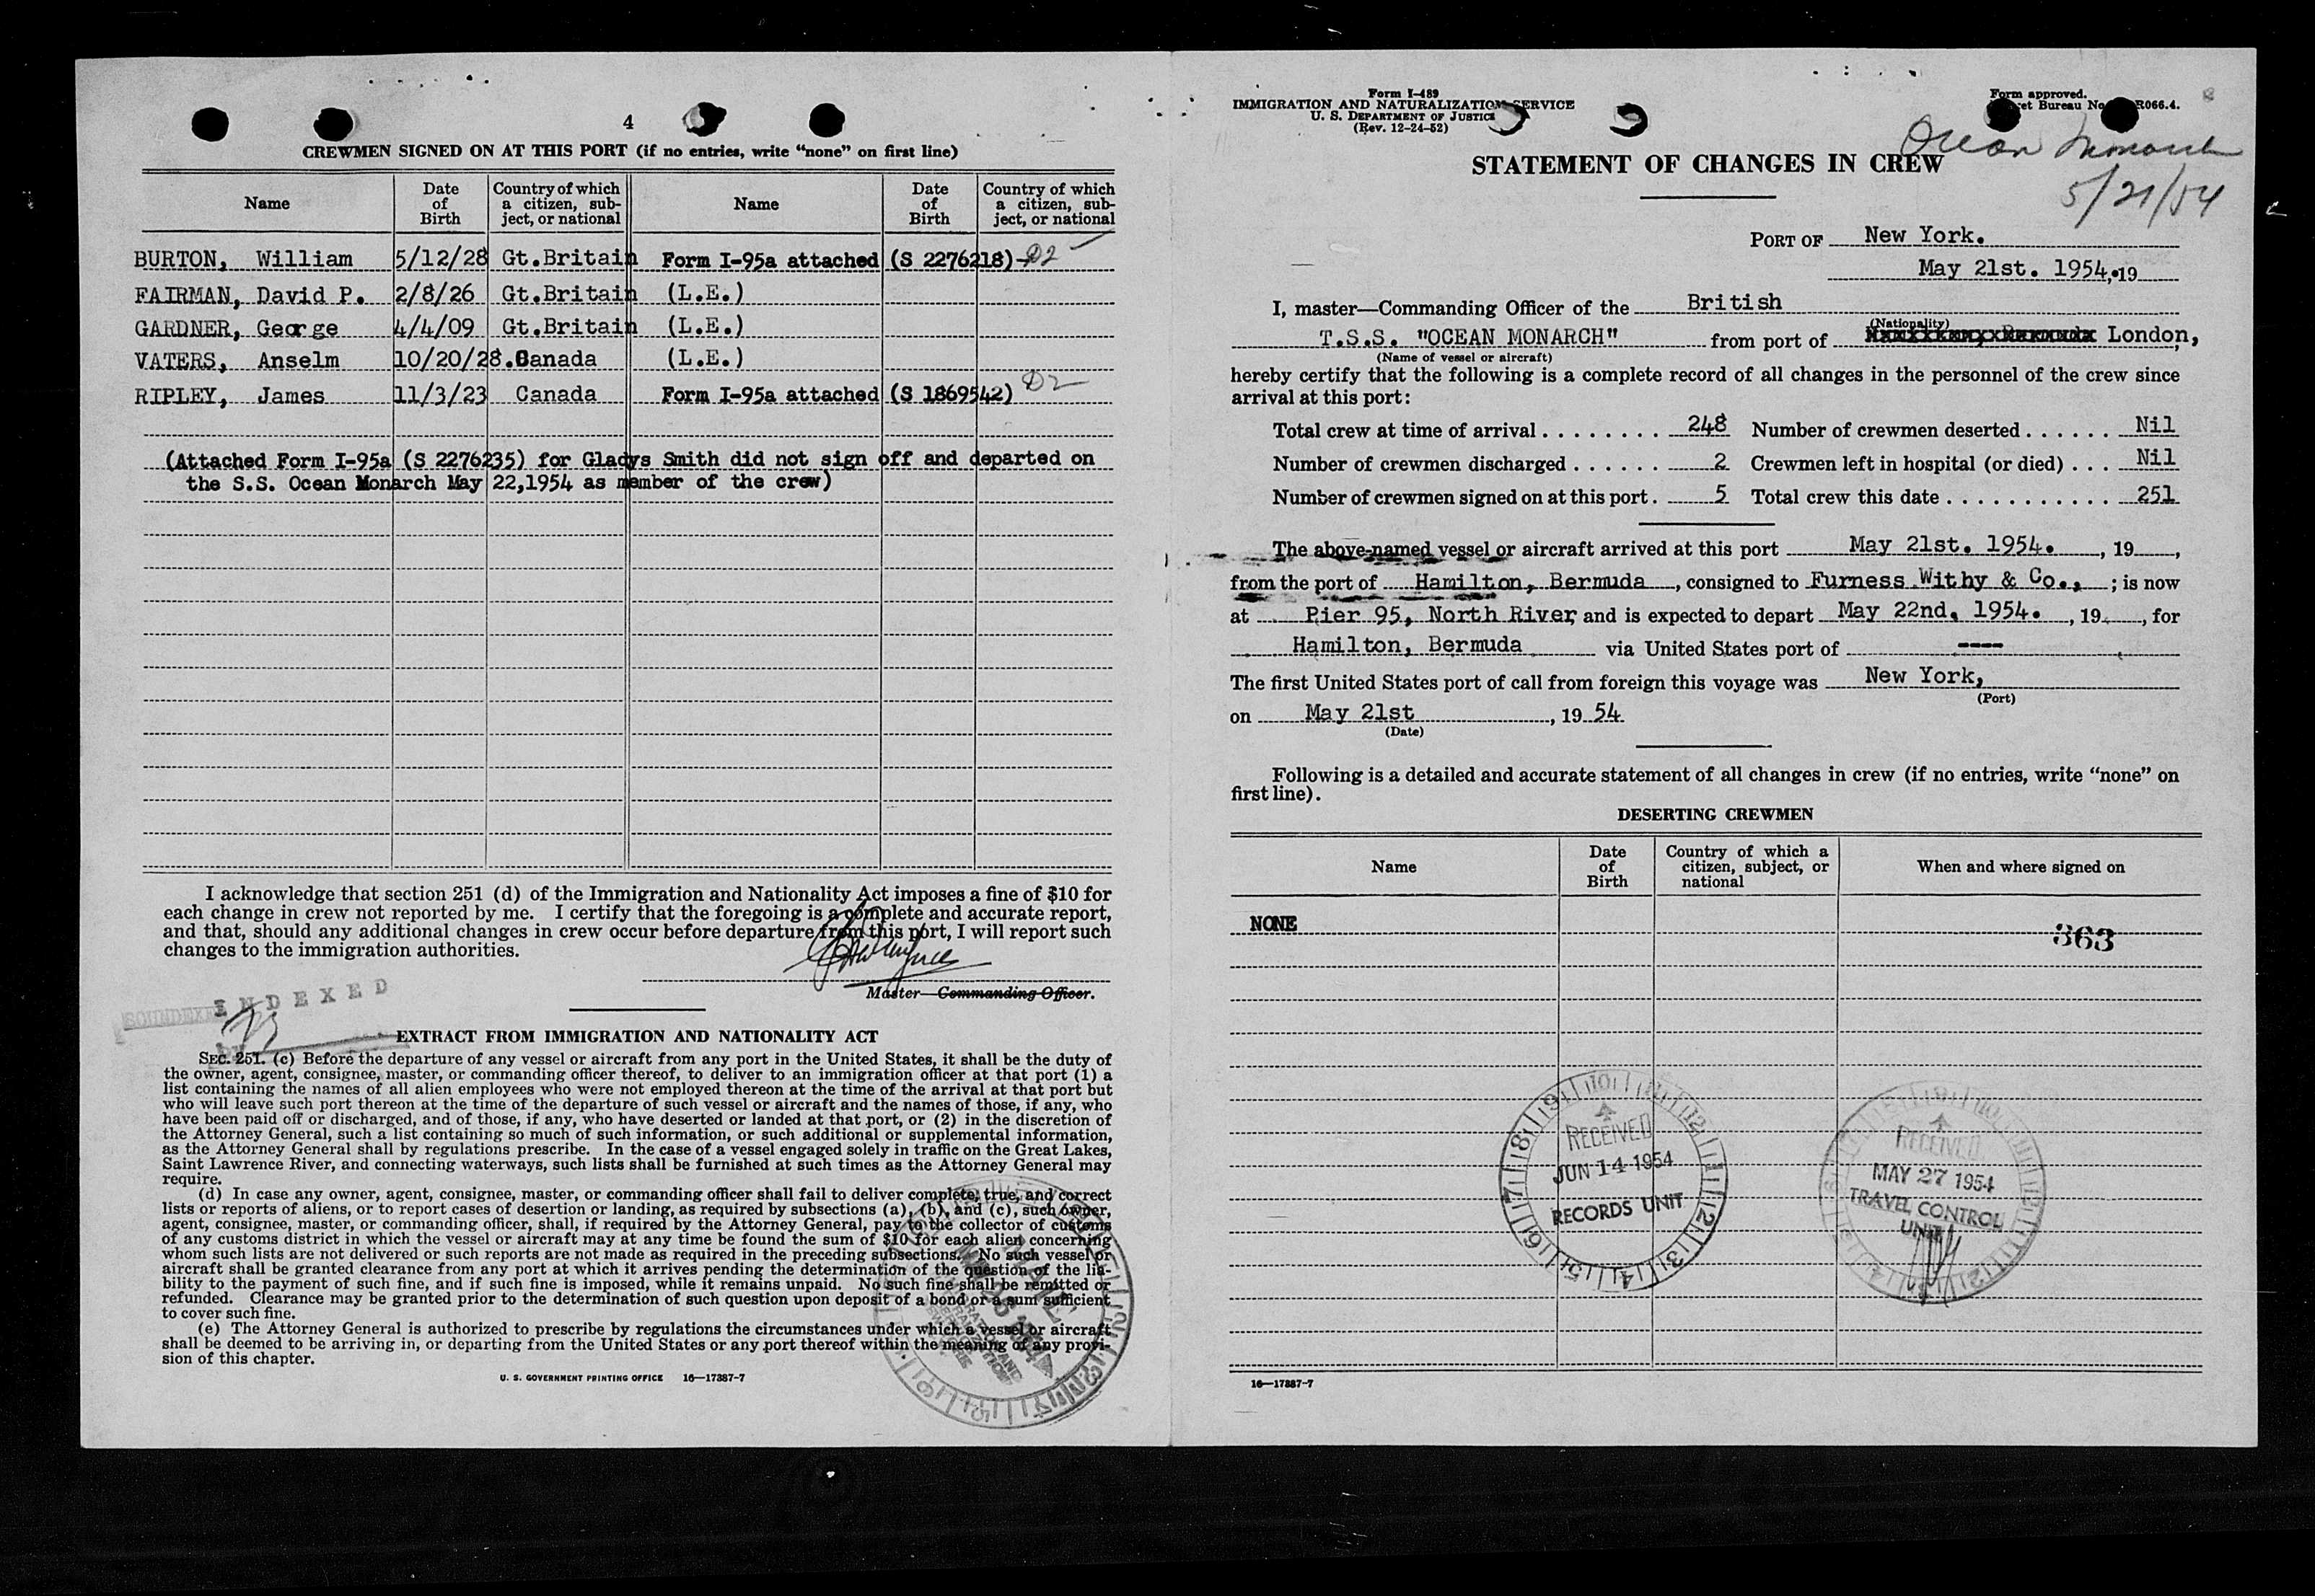 4
CREWMEN SIGNED ON AT THIS PORT (if no entries, write “none” on first line)
Name Date of Birth Country of which a citizen, subject, or national Name Date of Birth Country of which a citizen, subject, or national
BURTON, William 5/12/28 Gt.Britain Form I-95a attached (S 2276218)-D2
FAIRMAN, David P. 2/8/26 Gt.Britain (L.E.)
GARDNER, George 4/4/09 Gt.Britain (L.E.)
VATERS, Anselm 10/20/28. Canada (L.E.)
RIPLEY, James 11/3/23 Canada Form I-95a attached (S 1869542) D2
(Attached Form I-95a (S 2276235) for Gladys Smith did not sign off and departed on
the S.S. Ocean Monarch May 22,1954 as member of the crew)
I acknowledge that section 251 (d) of the Immigration and Nationality Act imposes a fine of $10 for
each change in crew not reported by me. I certify that the foregoing is a complete and accurate report,
and that, should any additional changes in crew occur before departure from this port, I will report such
changes to the immigration authorities.
Master—Commanding Officer.
INDEXED
SOUNDEXED
EXTRACT FROM IMMIGRATION AND NATIONALITY ACT
SEC. 251. (c) Before the departure of any vessel or aircraft from any port in the United States, it shall be the duty of
the owner, agent, consignee, master, or commanding officer thereof, to deliver to an immigration officer at that port (1) a
list containing the names of all alien employees who were not employed thereon at the time of the arrival at that port but
who will leave such port thereon at the time of the departure of such vessel or aircraft and the names of those, if any, who
have been paid off or discharged, and of those, if any, who have deserted or landed at that port, or (2) in the discretion of
the Attorney General, such a list containing so much of such information, or such additional or supplemental information,
as the Attorney General shall by regulations prescribe. In the case of a vessel engaged solely in traffic on the Great Lakes,
Saint Lawrence River, and connecting waterways, such lists shall be furnished at such times as the Attorney General may
require.
(d) In case any owner, agent, consignee, master, or commanding officer shall fail to deliver complete, true, and correct
lists or reports of aliens, or to report cases of desertion or landing, as required by subsections (a), (b), and (c), such owner,
agent, consignee, master, or commanding officer, shall, if required by the Attorney General, pay to the collector of customs
of any customs district in which the vessel or aircraft may at any time be found the sum of $10 for each alien concerning
whom such lists are not delivered or such reports are not made as required in the preceding subsections. No such vessel or
aircraft shall be granted clearance from any port at which it arrives pending the determination of the question of the lia-
bility to the payment of such fine, and if such fine is imposed, while it remains unpaid. No such fine shall be remitted or
refunded. Clearance may be granted prior to the determination of such question upon deposit of a bond or a sum sufficient
to cover such fine.
(e) The Attorney General is authorized to prescribe by regulations the circumstances under which a vessel or aircraft
shall be deemed to be arriving in, or departing from the United States or any port thereof within the meaning of any provi-
sion of this chapter.
U. S. GOVERNMENT PRINTING OFFICE 16—17387-7
MAIL
Form I-489
IMMIGRATION AND NATURALIZATION SERVICE
U. S. DEPARTMENT OF JUSTICE
(Rev. 12-24-52)
Form approved.
et Bureau No R066.4.
Ocean Monarch
5/21/54
STATEMENT OF CHANGES IN CREW
PORT OF New York.
May 21st. 1954, 19
I, master—Commanding Officer of the British
(Nationality)
T.S.S. "OCEAN MONARCH" from port of London,
(Name of vessel or aircraft)
hereby certify that the following is a complete record of all changes in the personnel of the crew since
arrival at this port:
Total crew at time of arrival . . . . . . . . 248 Number of crewmen deserted . . . . . . Nil
Number of crewmen discharged . . . . . . 2 Crewmen left in hospital (or died) . . . Nil
Number of crewmen signed on at this port . 5 Total crew this date . . . . . . . . . . . 251
The above-named vessel or aircraft arrived at this port May 21st. 1954. , 19 ,
from the port of Hamilton, Bermuda , consigned to Furness Withy & Co., ; is now
at Pier 95, North River, and is expected to depart May 22nd, 1954. , 19 , for
Hamilton, Bermuda via United States port of ----
The first United States port of call from foreign this voyage was New York,
(Port)
on May 21st , 19 54
(Date)
Following is a detailed and accurate statement of all changes in crew (if no entries, write “none” on
first line).
DESERTING CREWMEN
Name Date of Birth Country of which a citizen, subject, or national When and where signed on
NONE
363
RECEIVED
JUN 14 1954
RECORDS UNIT
RECEIVED
MAY 27 1954
TRAVEL CONTROL
UNIT
16—17387-7